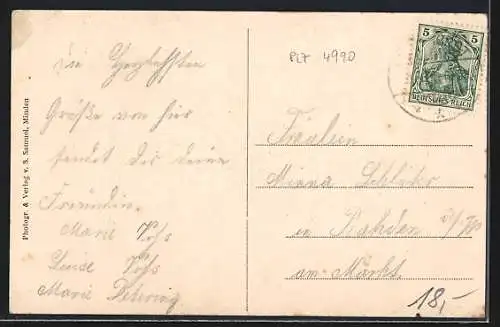 die herzlichsten
Grüße von hier
sendet dir deine
Freundin.
Marie Voß
Luise Voß
Marie
Photogr. & Verlag v. S. Samuel, Minden
PLZ 4990
5 5
DEUTSCHES REICH
Fräulein
Minna Schlüter
in Rahden i/W
am Markt
18,-